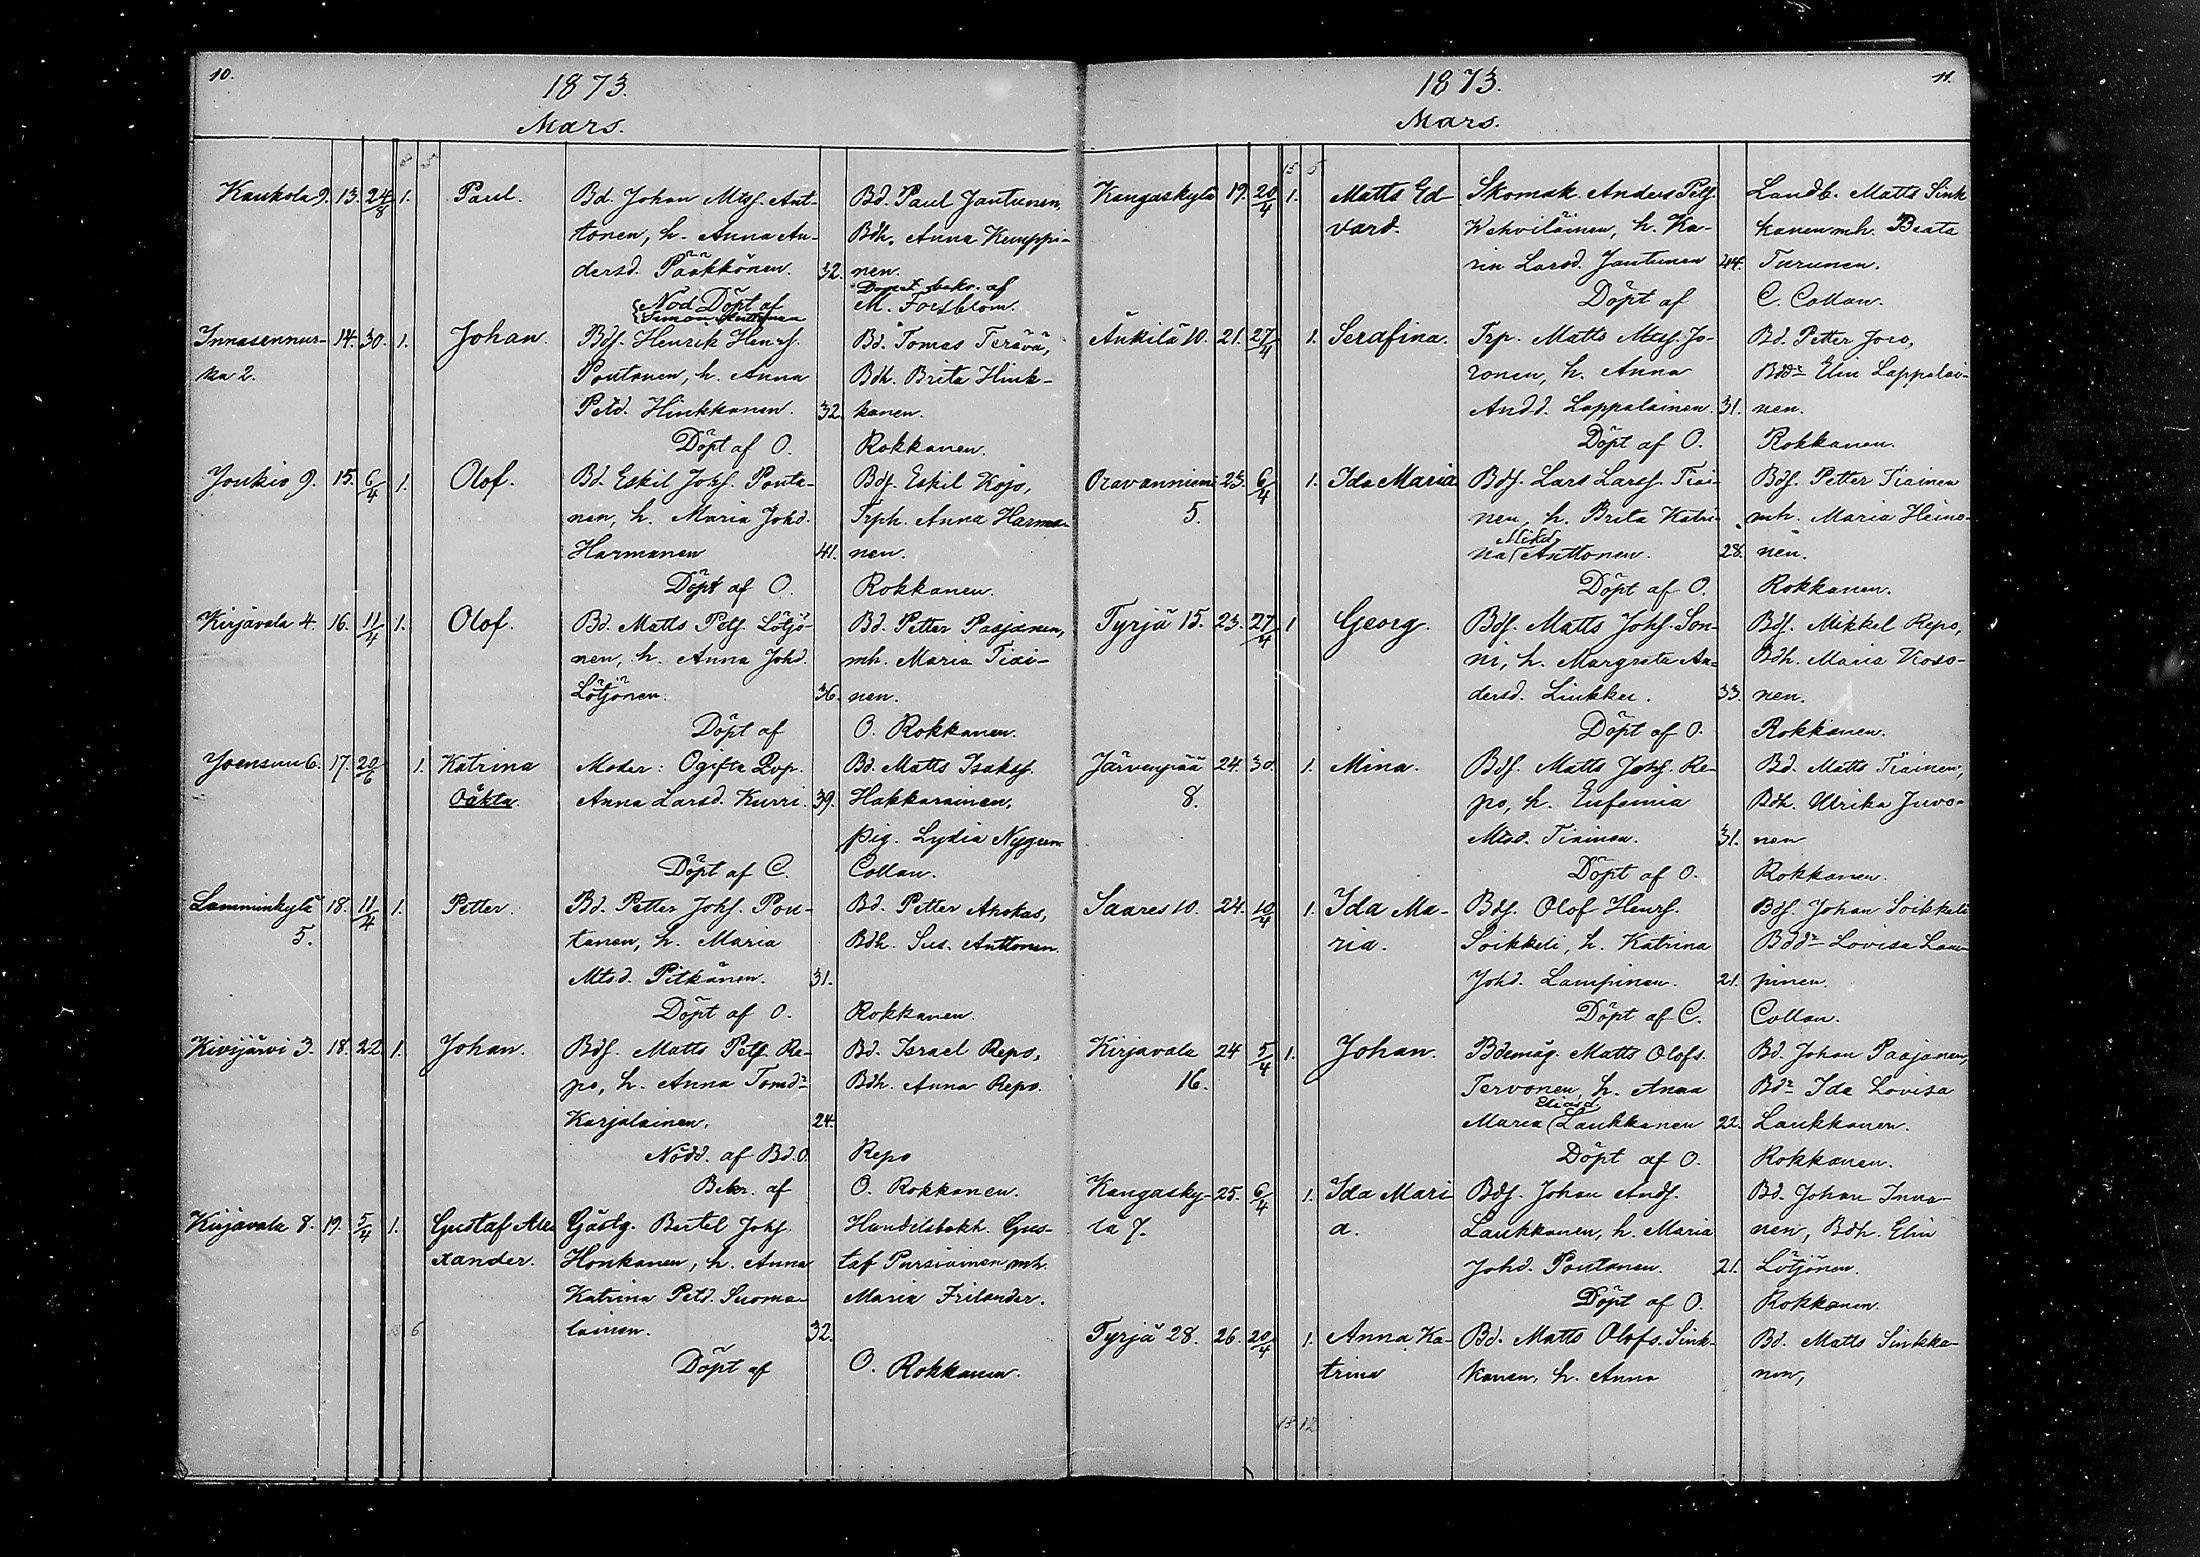 10.
1873.
Mars.
Kaukola 9. 13. 24/8 1. Paul. Bd. Johan Mtsf. Ant- Bd. Paul Jantunen,
tonen, h. Anna An- Bdh. Anna Kemppi-
dersd. Pääkkönen. 32. nen.
Nöd Döpt af Dopet bekr. af
Simon M. Forsblom.
Innasennur- 14. 30. 1. Johan. Bdf. Henrik Henrf. Bd. Tomas Terävä,
ka 2. Poutanen, h. Anna Bdh. Brita Hink-
Petd. Hinkkanen. 32. kanen.
Döpt af O. Rokkanen.
Joukio 9. 15. 6/4 1. Olof. Bd. Eskil Johf. Pouta- Bdf. Eskil Kojo,
nen, h. Maria Johd. Trph. Anna Harma-
Harmanen 41. nen.
Döpt af O. Rokkanen.
Kirjavala 4. 16. 11/4 1. Olof. Bd. Matts Petf. Lötjö- Bd. Petter Paajanen,
nen, h. Anna Johd. mh. Maria Tiai-
Lötjönen. 36. nen.
Döpt af O. Rokkanen.
Joensuu 6. 17. 20/6 1. Katrina Moder: Ogifta Bd. Matts Isaksf.
Oäkta. Anna Larsd. Kurri. 39. Hakkarainen,
pig. Lydia Nygren.
Döpt af C. Collan.
Lamminkylä 18. 11/4 1. Petter. Bd. Petter Johf. Pou- Bd. Petter Ahokas,
5. tanen, h. Maria Bdh. Sus. Anttonen.
Mtsd. Pitkänen. 31.
Döpt af O. Rokkanen.
Kivijärvi 3. 18. 22 1. Johan. Bdf. Matts Petf. Re- Bd. Israel Repo,
po, h. Anna Tomd- Bdh. Anna Repo.
Karjalainen. 24.
Nödd. af Bd. O. Repo
Bekr. af O. Rokkanen.
Kirjavala 8. 19. 5/4 1. Gustaf Alex Gästg. Bertel Johf. Handelsbokh. Gus-
xander. Honkanen, h. Anna taf Pursiainen, mh.
Katrina Petd. Suoma- Maria Frilander.
6 lainen. 32.
Döpt af O. Rokkanen.
11.
1873.
Mars.
15 5
Kangaskylä 19. 20/4 1. Matts Ed- Skomak. Anders Petf. Landb. Matts Sink
vard. Wehviläinen, h. Ka- kanen mh. Beata
rin Larsd. Jantunen 44. Turunen.
Döpt af C. Collan.
Änkilä 10. 21. 27/4 1. Serafina. Trp. Matts Mtsf. Jo- Bd. Petter Joro,
ronen, h. Anna Bddr Elin Lappalai-
Andd. Lappalainen. 31. nen.
Döpt af O. Rokkanen.
Oravanniemi 23. 6/4 1. Ida Maria Bdf. Lars Larsf. Tiai- Bdf. Petter Tiainen
5. nen, h. Brita Katri- mh. Maria Heino-
na Anttonen. 28. nen.
Döpt af O. Rokkanen.
Tyrjä 15. 23. 27/4 1 Georg. Bdf. Matts Johf. Son- Bdf. Mikkel Repo,
ni, h. Margreta An- Bdh. Maria Koso-
dersd. Liukku. 33. nen.
Döpt af O. Rokkanen.
Järvenpää 24. 30. 1. Mina. Bdf. Matts Johf. Re- Bd. Matts Tiainen,
8. po, h. Eufemia Bdh. Ulrika Juvo-
Mtsd. Tiainen. 31. nen
Döpt af O. Rokkanen.
Saares 10. 24. 10/4 1. Ida Ma- Bdf. Olof Henrf. Bdf. Johan Soikkeli
ria. Soikkeli, h. Katrina Bddr Lovisa Lam-
Johd. Lampinen. 21. pinen.
Döpt af C. Collan.
Kirjavala 24 5/4 1. Johan. Bdemåg. Matts Olofs. Bd. Johan Paajanen,
16. Tervonen, h. Anna Bdr Ida Lovisa
Maria (Eliasd. Laukkanen 22. Laukkanen.
Döpt af O. Rokkanen.
Kangasky- 25. 6/4 1. Ida Mari Bdf. Johan Andf. Bd. Johan Inna-
lä 7. a. Laukkanen, h. Maria nen, Bdh. Elin
Johd. Poutanen. 21. Lötjönen.
Döpt af O. Rokkanen.
Tyrjä 28. 26. 20/4 1. Anna Ka- Bd. Matts Olofs. Sink- Bd. Matts Sinkka-
trina kanen, h. Anna nen,
15 12